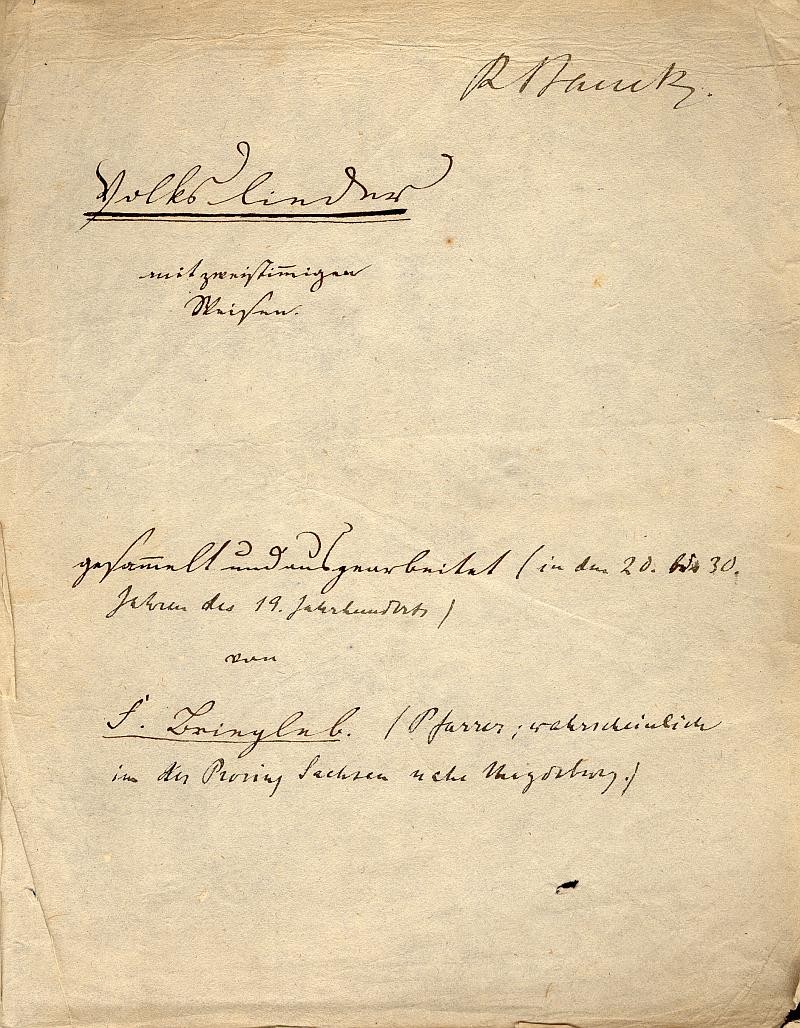 R
Volkslieder
mit zweistim̅igen
Weisen.
gesam̅elt und ausgearbeitet (in den 20. bis 30.
Jahren des 19. Jahrhunderts)
von
F. Briegleb. (Pfarrer; wahrscheinlich
in der Provinz Sachsen nahe Magdeburg.)